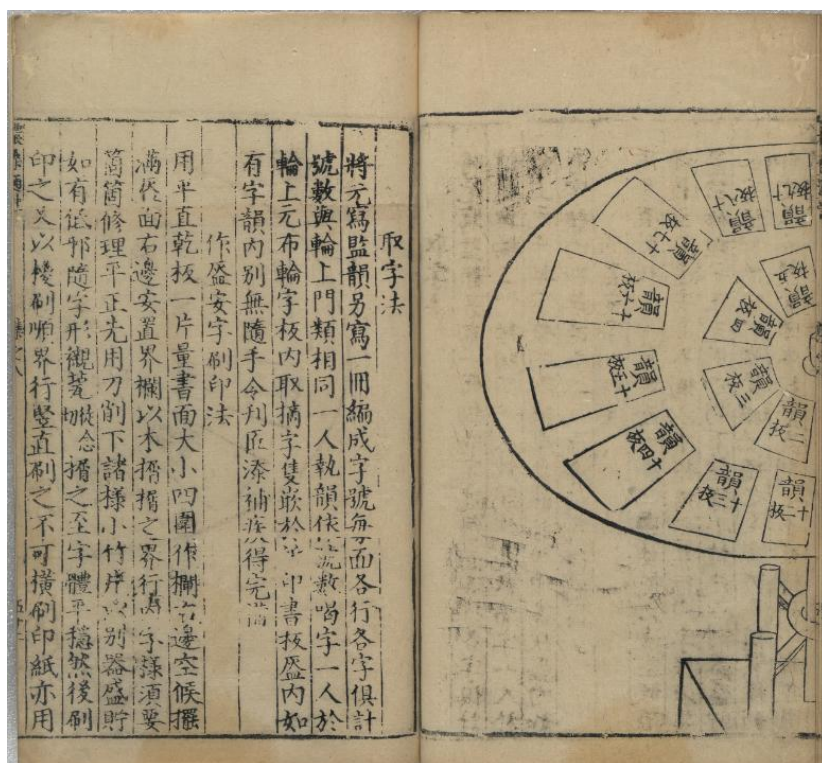 韻十八板
韻十八板
韻十七板
韻十六板
韻十五板
韻十四板
韻十三板
韻十二板
韻五板
韻四板
韻三板
韻二板
取字法
將元寫監韻另寫一冊編成字號每面各行各字俱計
號數與輪上門類相同一人執韻依號數喝字一人於
輪上元布輪字板內取摘字隻嵌於印書板盔內如
有字韻內別無隨手令刊匠添補疾得完備
作盔安字刷印法
用平直乾板一片量書面大小四圍作欄右邊空候擺
滿盔面右邊安置界欄以木榍榍之界行內字樣須要
箇箇修理平正先用刀削下諸樣小竹片以別器盛貯
如有低邪隨字形襯㨝徒念切榍之至字體平穩然後刷
印之又以椶刷順界行豎直刷之不可橫刷印紙亦用